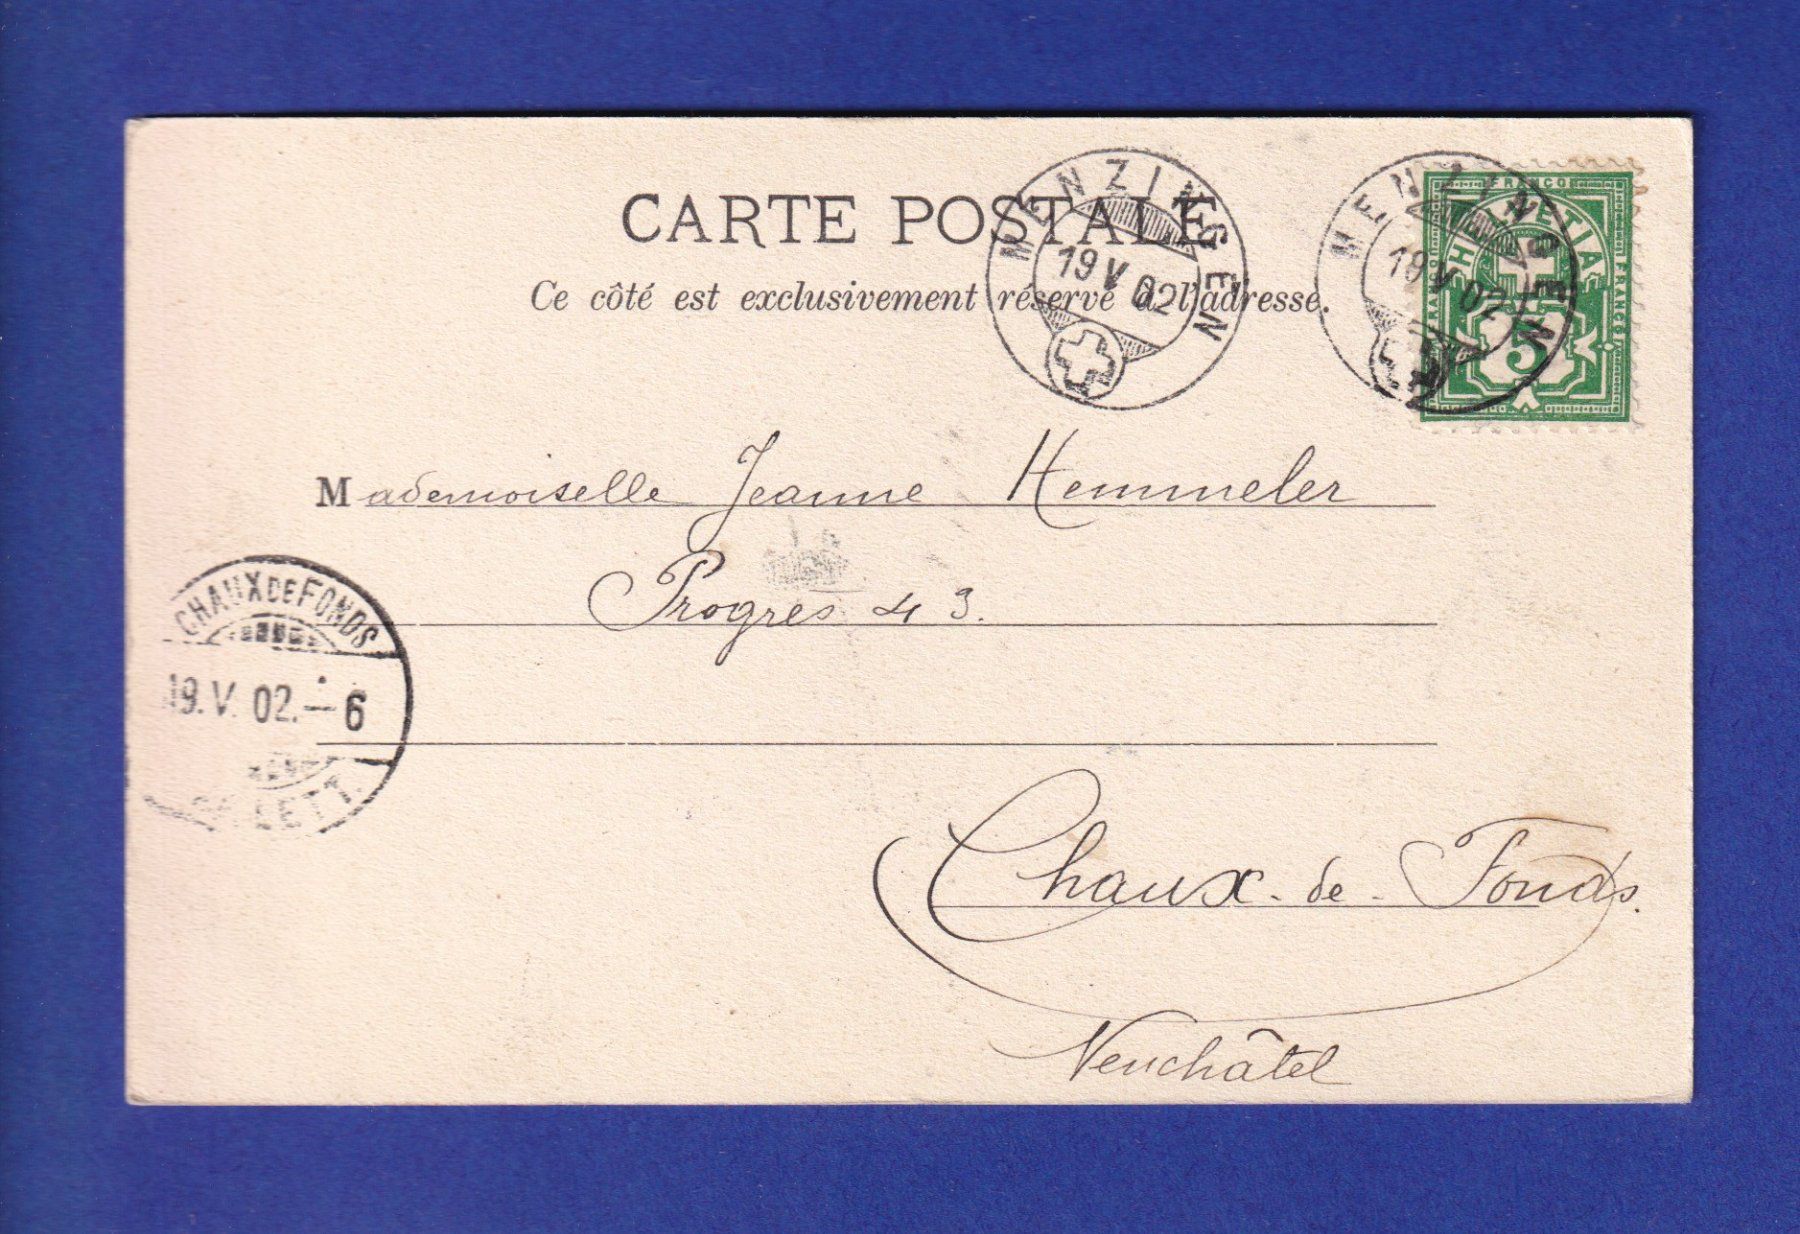 CARTE POSTALE
Ce côté est exclusivement réservé à l'adresse.
MENZINGEN
19 V 02
MENZINGEN
19 V 02
FRANCO
HELVETIA
FRANCO
FRANCO
5
Mademoiselle Jeanne Hemmeler
Progres 43.
CHAUX DE FONDS
19.V.02.–6
LETT.
Chaux-de-Fonds.
Neuchâtel